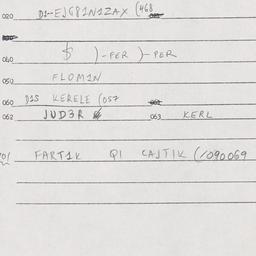 020 D1-EJG81N1ZAX (468
060 $ )-PER )-PER
050 FLOM1N
060 D1S KERELE (057
062 JUD3R 063 KERL
FART1K QI CAJTIK (/090069